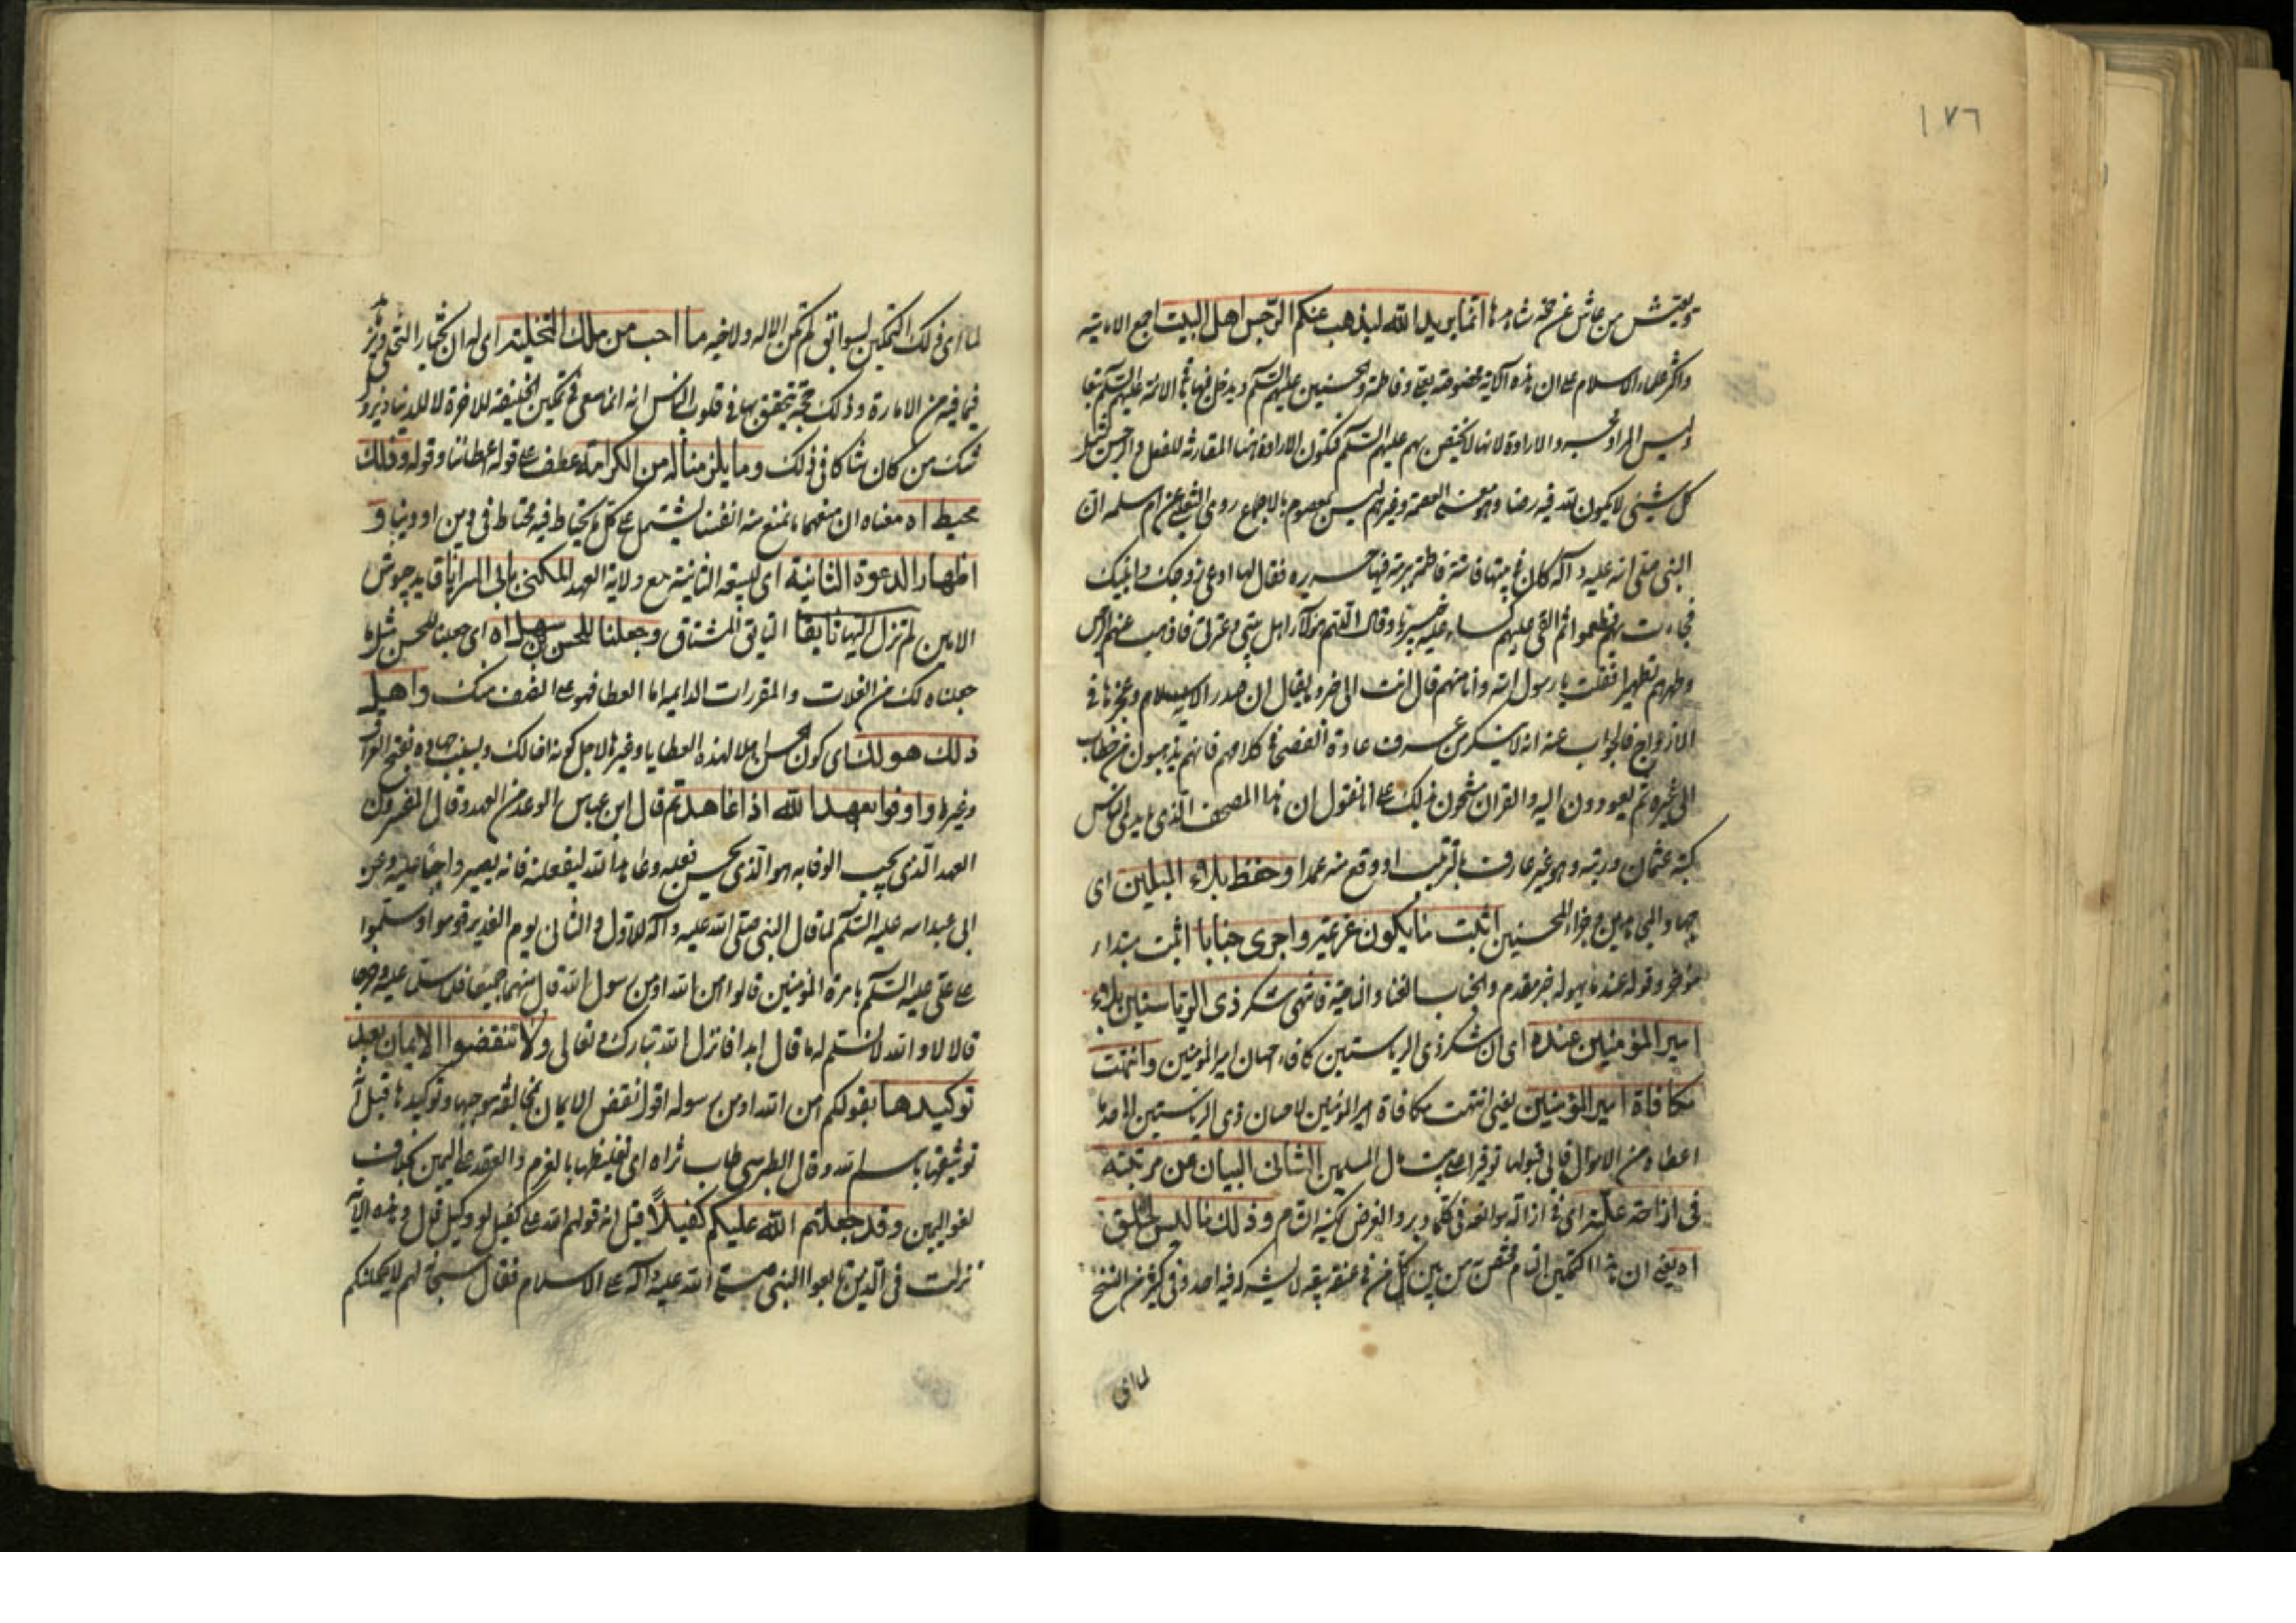 ١٧٦
ويعيش من عاش عن انما يريد الله ليذهب عنكم الرجس اهل البيت اجمع الامامية
واكثر علماء الاسلام على ان هذه الآية مخصوصة بعلى وفاطمة والحسنين عليهم السلام ويدخل فيها الائمة عليهم السلام تبعا
وليس المراد الارادة لانها لا تختص بهم عليهم السلام فتكون الارادة هنا المقارنة للفعل والرجس
كل شيئى لا يكون لله فيه رضا وهو معنى العصمة وغيرهم ليس بمعصوم بالاجماع روى الثعلبى عن ام سلمه ان
النبى صلى الله عليه وآله كان فى بيتها فاتته فاطمة ببرمة فيها حريره فقال لها ادعى زوجك وابنيك
فجاءت بهم فطعموا ثم القى عليهم كساء خيبريا وقال اللهم هؤلاء اهل بيتى وعترتى فاذهب عنهم الرجس
وطهرهم تطهيرا فقلت يا رسول الله وانا منهم قال انت الى خير وما يقال ان صدر الآية وعجزها فى
الازواج فالجواب عنه انه لا ينكر من عرف عادة الفصحا فى كلامهم فانهم يذهبون من خطاب
الى غيره ثم يعودون اليه والقران مشحون بذلك على انا نقول ان هذا المصحف الذى بايدى الناس
كتبه عثمان ورتبه وهو غير عارف بالترتيب او وقع منه عمدا وحفظ بلاء المبلين اى
جهاد المجاهدين وجزاء المحسنين اثبت ما يكون عزيمة واجرى جنابا اثبت مبتداء
مؤخر وقوله عنده خبر مقدم والجناب الفنا والناحية فانتهى شكر ذى الرياستين بلاء
امير المؤمنين عنده اى ان شكر ذى الرياستين كافاء احسان امير المؤمنين وانتهت
مكافاة امير المؤمنين يعنى انتهت مكافاة امير المؤمنين لاحسان ذى الرياستين الى حد ما
اعطاه من الاموال فابى قبولها توفيرا على بيت مال المسلمين الشانى البيان عن مرتبته
فى ازاحة علته اى فى ازالة موانعه والغرض تمكينه التام وذلك ما ليس لخلق
اه يعنى ان هذا التمكين التام مختص من بين كل من فى عنقه بيعة لا يشركه فيه احد وفى كثير من النسخ
لما اى

لما اى ذلك التمكين ليسوا ثق لم تكن الا له ولاخيه ما احب من ملك التخلية اى له ان يختار التخلى
فيما فيه من الامارة وذلك حجة تتحقق بها فى قلوب الناس انه انما سعى فى تمكين الخليفة للاخرة لا للدنيا
شك من كان شاكا فى ذلك وما يلزمنا له من الكرامة عطف على قوله اعطائنا وقوله وذلك
محيط اه معناه ان منعهما ما نمنع منه انفسنا يشتمل على كل ما يحتاط فيه محتاط فى دين او دنيا و
اظهار الدعوة الثانية اى البيعة الثانية مع ولاية العهد قايد جيوش
الامين لم تزل اليها تايقا التايق المشتاق وجعلنا للحسن بن سهل اه اى جعلنا للحسن مثل ما
جعلناه لك من الغلات والمقررات الدايمه اما العطا فهو على النصف منك واهل
ذلك هو لك اى كون الحسن اهلا لهذه العطايا وغيرها لاجل كونه اخا لك وبسبب جهاده وفتح العراق
وغيرها واوفوا بعهد الله اذا عاهدتم قال ابن عباس الوعد من العهد وقال المفسرون
العهد الذى يجب الوفا به هو الذى يحسن فعله وعاهد الله ليفعلنه فانه يصير واجبا عليه وعن
ابى عبد الله عليه السلام لما قال النبى صلى الله عليه وآله للاول والثانى يوم الغدير قوموا وسلموا
على على عليه السلام بامرة المؤمنين قالوا امن الله او من رسول الله قال منهما جميعا
قالا لا والله لا نسلم له ما قال ابدا فانزل الله تبارك وتعالى ولا تنقضوا الايمان بعد
توكيدها بقولكم امن الله او من رسوله اقول نقض الايمان مخالفة موجبها وتوكيدها قيل اى
توثيقها باسم الله وقال الطبرسى طاب ثراه اى تغليظها بالعزم والعقد على اليمين بخلاف
لغو اليمين وقد جعلتم الله عليكم كفيلا قيل انه قولهم الله على كفيل او وكيل قيل وهذه الآية
نزلت فى الذين بايعوا النبى صلى الله عليه وآله على الاسلام فقال سبحانه لهم لا يحملنكم